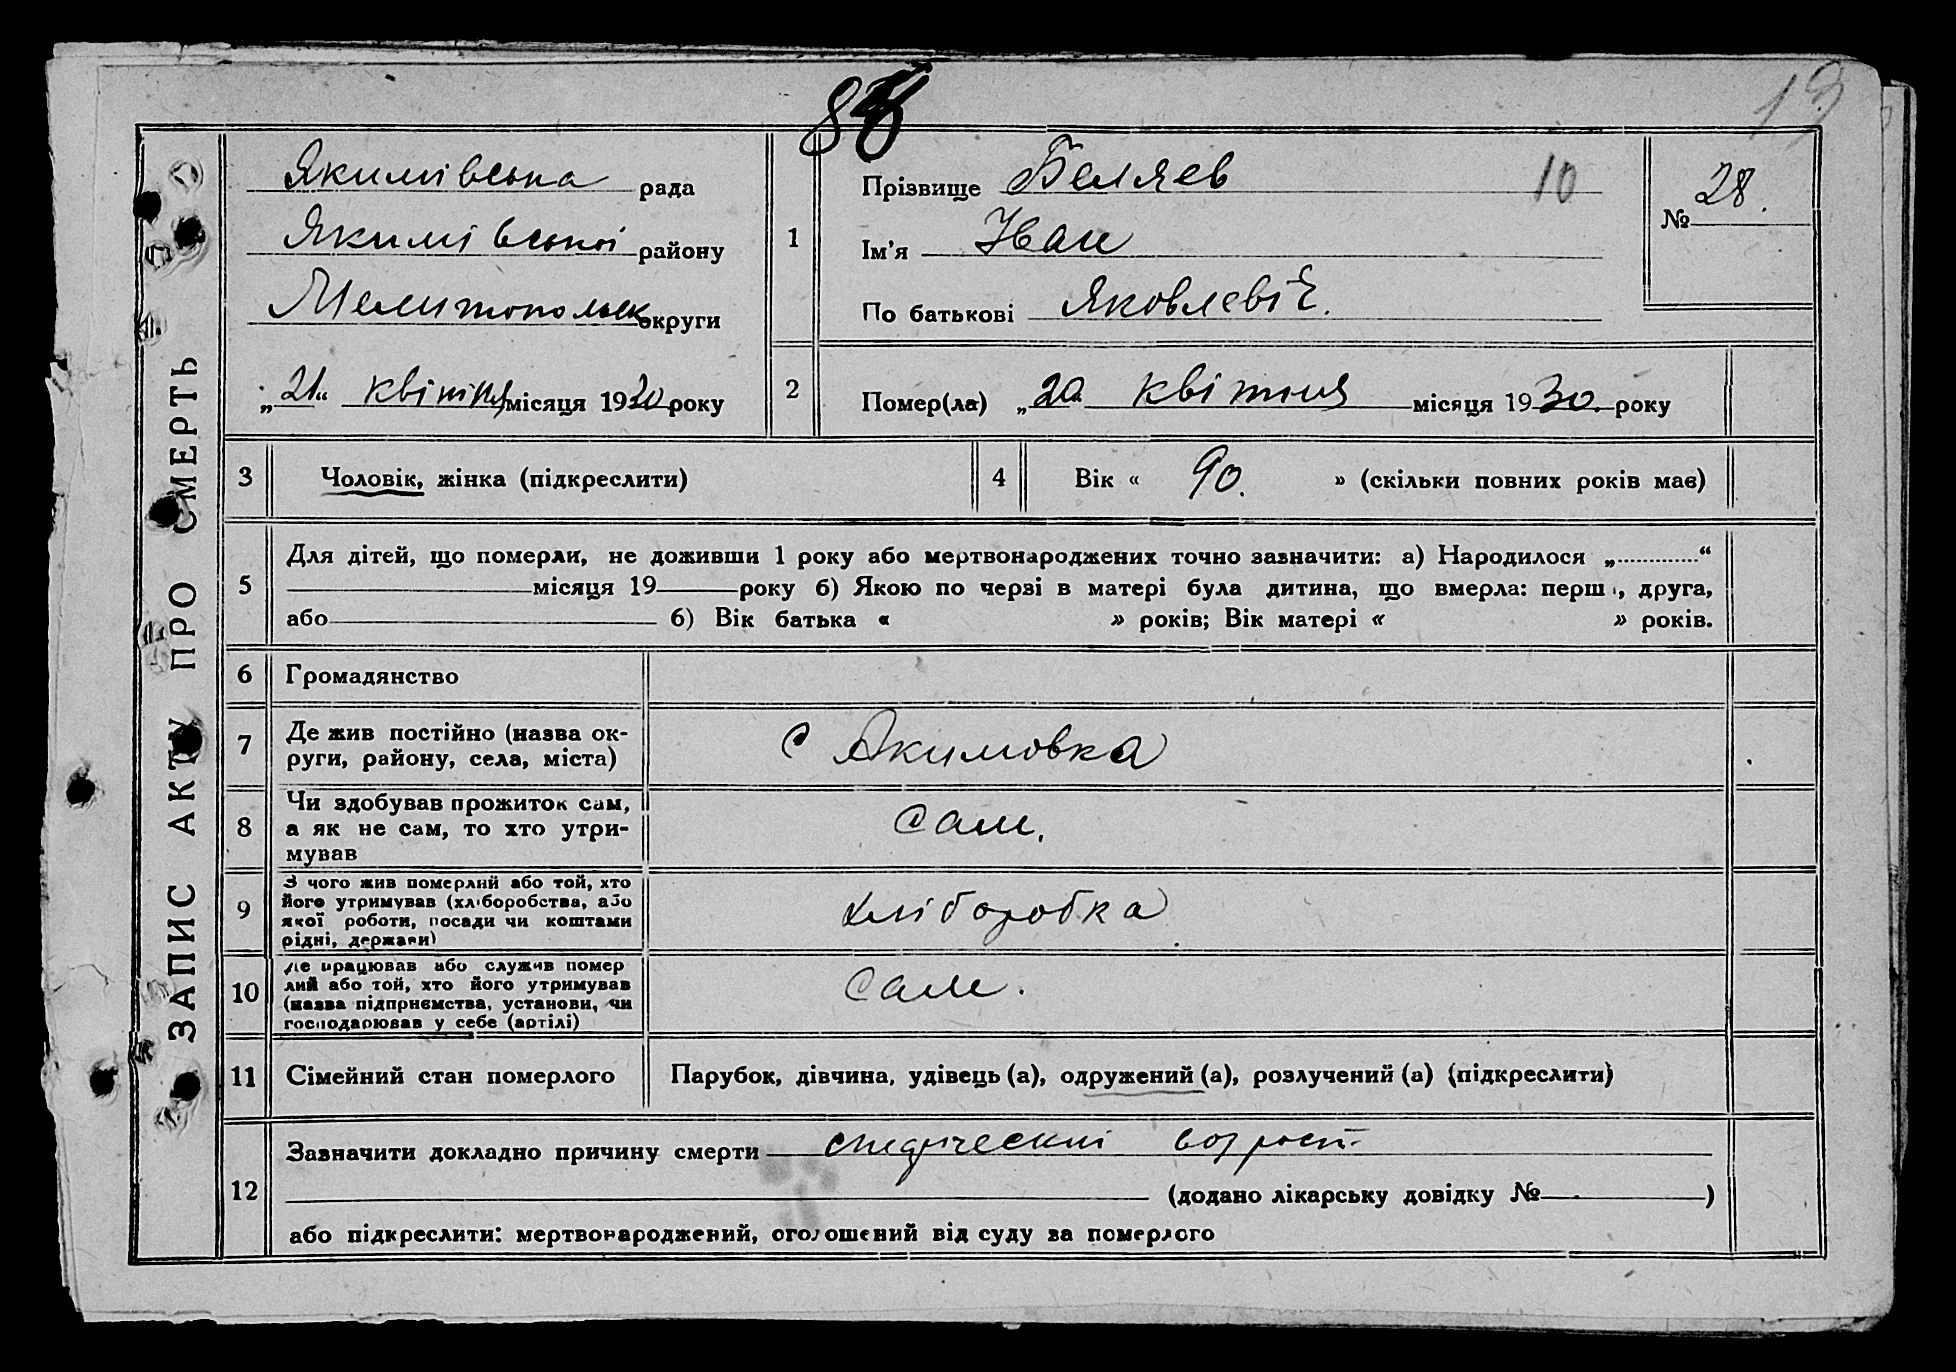 13
ЗАПИС АКТУ ПРО СМЕРТЬ
Якимівська рада
Якимівської району
Мелитопольськ округи
„21“ квітня місяця 1930 року
1
Прізвище Беляев 10
Ім'я Иван
По батькові Яковлевіч.
№ 28.
2
Помер(ла) „20 квітня місяця 1930. року
3 Чоловік, жінка (підкреслити)
4 Вік « 90. » (скільки повних років має)
5
Для дітей, що померли, не доживши 1 року або мертвонароджених точно зазначити: а) Народилося „............“
місяця 19 року б) Якою по черзі в матері була дитина, що вмерла: перша, друга,
або б) Вік батька « » років; Вік матері « » років.
6 Громадянство
7
Де жив постійно (назва ок-
руги, району, села, міста)
с Якимовка
8
Чи здобував прожиток сам,
а як не сам, то хто утри-
мував
Сам.
9
З чого жив померлий або той, хто
його утримував (хліборобства, або
якої роботи, посади чи коштами
рідні, держави)
хліборобка
10
Де працював або служив помер
лий або той, хто його утримував
(назва підприємства, установи, чи
господарював у себе (артілі)
Сам.
11 Сімейний стан померлого
Парубок, дівчина, удівець (а), одружений (а), розлучений (а) (підкреслити)
12
Зазначити докладно причину смерти возраст
(додано лікарську довідку № )
або підкреслити: мертвонароджений, оголошений від суду за померлого